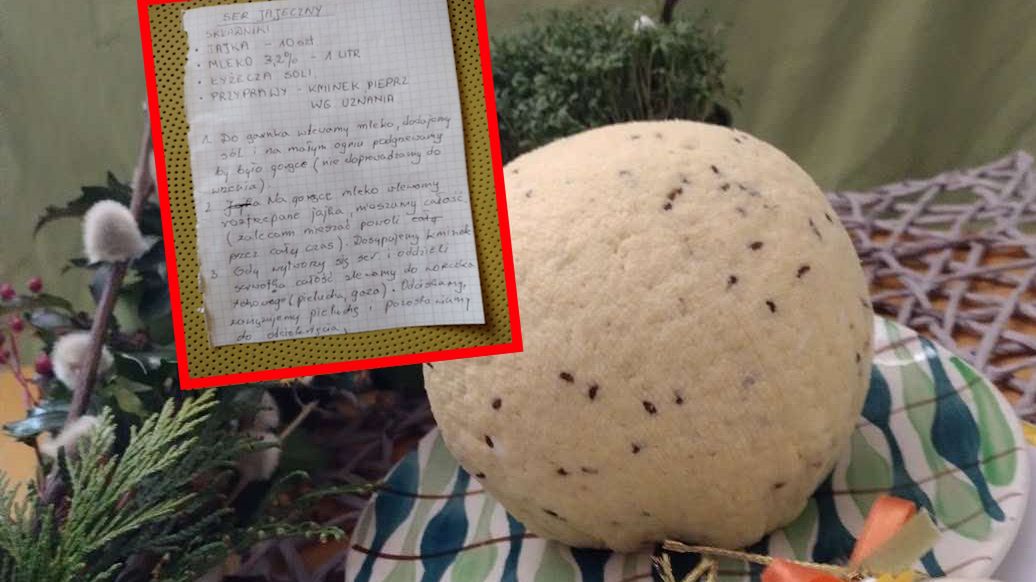 SER JAJECZNY
SKŁADNIKI
• JAJKA - 10 szt
• MLEKO 3,2% - 1 LITR
• ŁYŻECZA SOLI
• PRZYPRAWY - KMINEK, PIEPRZ
WG. UZNANIA
1. Do garnka wlewamy mleko, dodajemy
sól i na małym ogniu podgrzewamy
by było gorące (nie doprowadzamy do
wrzenia).
2. Na gorące mleko wlewamy
roztrzepane jajka, mieszamy całość
(zalecam mieszać powoli cały
przez cały czas). Dosypujemy kminek
3. Gdy wytworzy się ser i oddzieli
serwatka całość zlewamy do woreczka
(pielucha, gaza). Odciskamy,
zawiązujemy pieluchę i pozostawiamy
do odcieknięcia,